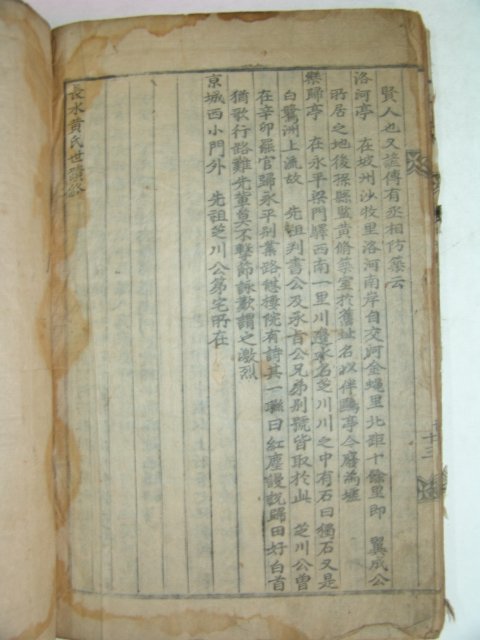 賢人也又諺傳有丞相仿築云
洛河亭 在坡州沙牧里洛河南岸自交河金蠅里北距十餘里即 翼成公
所居之地後孫縣監黃脩築室於舊址名以伴鷗亭今廢為墟
樂歸亭 在永平梁門驛西南一里川邊水名芝川川之中有石曰獨石又是
白鷺洲上流故 先祖判書公及承旨公兄弟別號皆取於此 芝川公曾
在辛卯罷官歸永平別業路傍樓院有詩其一聯曰紅塵謾說歸田好白首
猶歌行路難先輩莫不擊節詠歎謂之激烈
京城西小門外 先祖芝川公第宅所在
長水黃氏世譜
十三